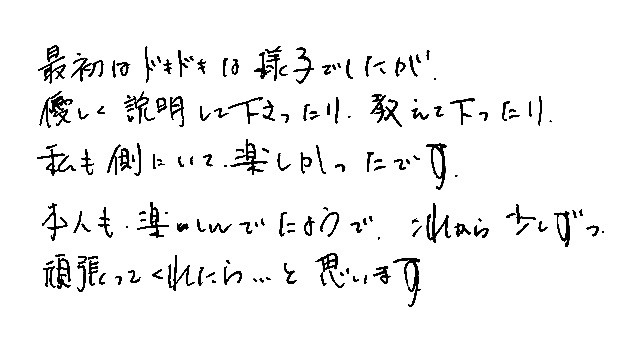 最初はドキドキは様子でしたが、
優しく説明して下さったり、教えて下ったり、
私も側にいて、楽しかったです。
本人も、楽めしんでたようで、これから少しずつ
頑張ってくれたら…と思います